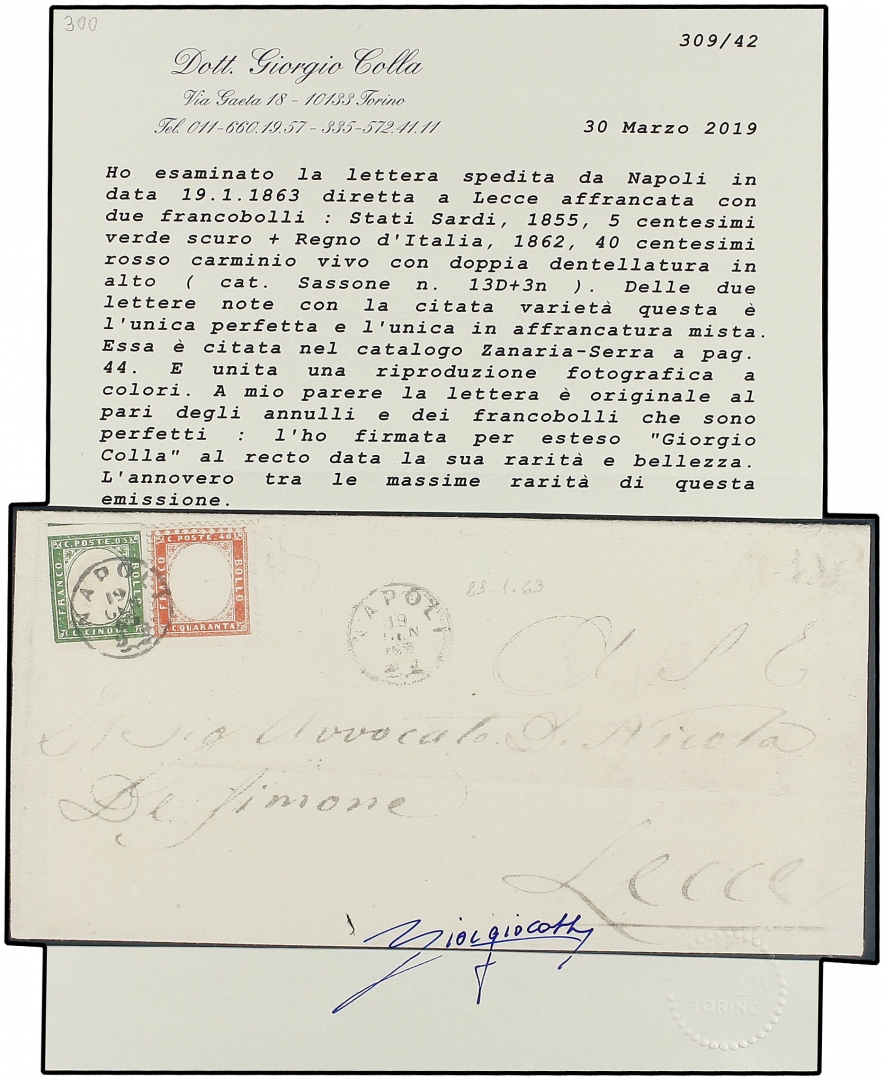 300
309/42
Dott. Giorgio Colla
Via Gaeta 18 - 10133 Torino
Tel. 011-660.19.57 - 335-572.41.11
30 Marzo 2019
Ho esaminato la lettera spedita da Napoli in
data 19.1.1863 diretta a Lecce affrancata con
due francobolli : Stati Sardi, 1855, 5 centesimi
verde scuro + Regno d'Italia, 1862, 40 centesimi
rosso carminio vivo con doppia dentellatura in
alto ( cat. Sassone n. 13D+3n ). Delle due
lettere note con la citata varietà questa è
l'unica perfetta e l'unica in affrancatura mista.
Essa è citata nel catalogo Zanaria-Serra a pag.
44. E unita una riproduzione fotografica a
colori. A mio parere la lettera è originale al
pari degli annulli e dei francobolli che sono
perfetti : l'ho firmata per esteso "Giorgio
Colla" al recto data la sua rarità e bellezza.
L'annovero tra le massime rarità di questa
emissione.
C. POSTE. 05
FRANCO
BOLLO
C. CINQUE
C. POSTE. 40
FRANCO
BOLLO
C. QUARANTA
NAPOLI
19
NAPOLI
19
GEN
23.1.63
A S E
Il Sig Avvocato D. Nicola
De Simone
Lecce
Giorgiocolla
TORINO